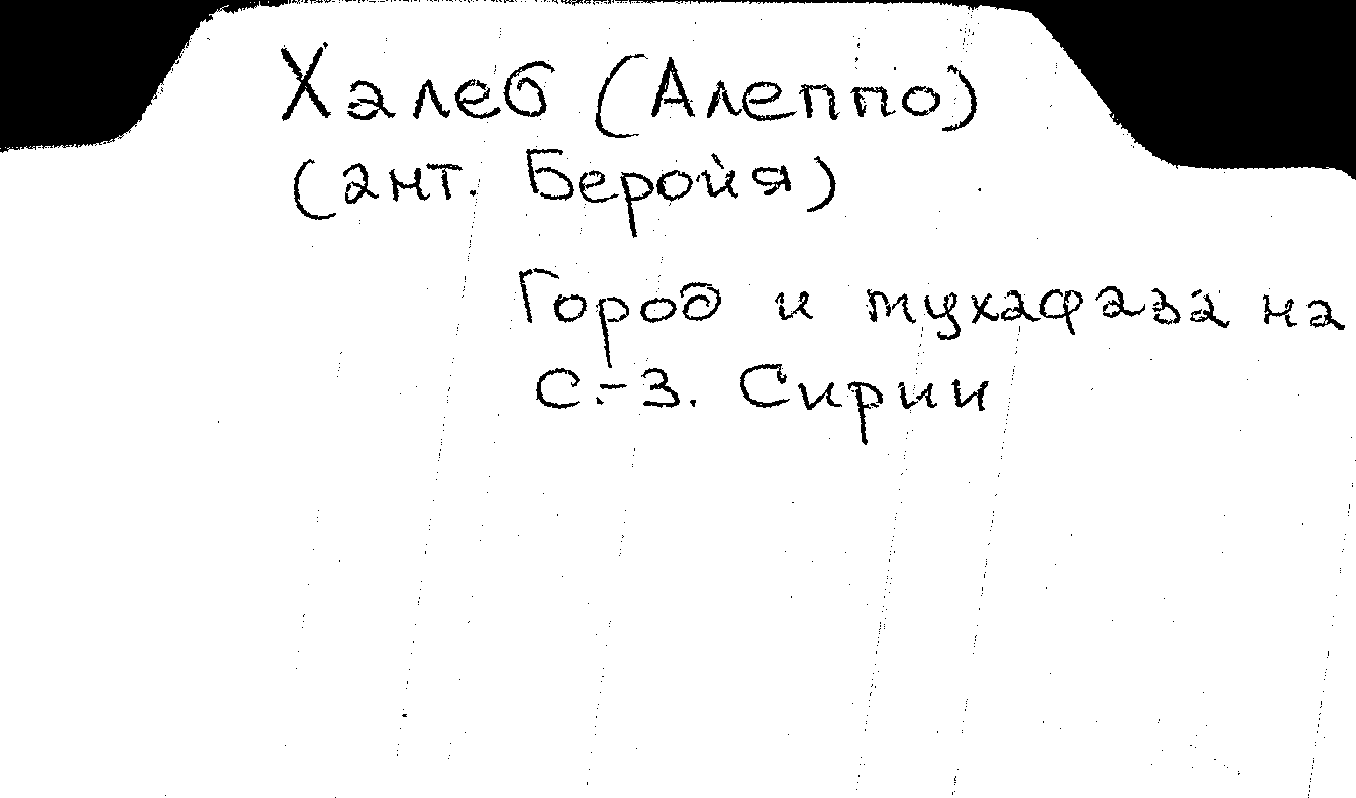 Халеб (Алеппо)
(ант. Беройя)
Город и мухафаза на
С.-З. Сирии